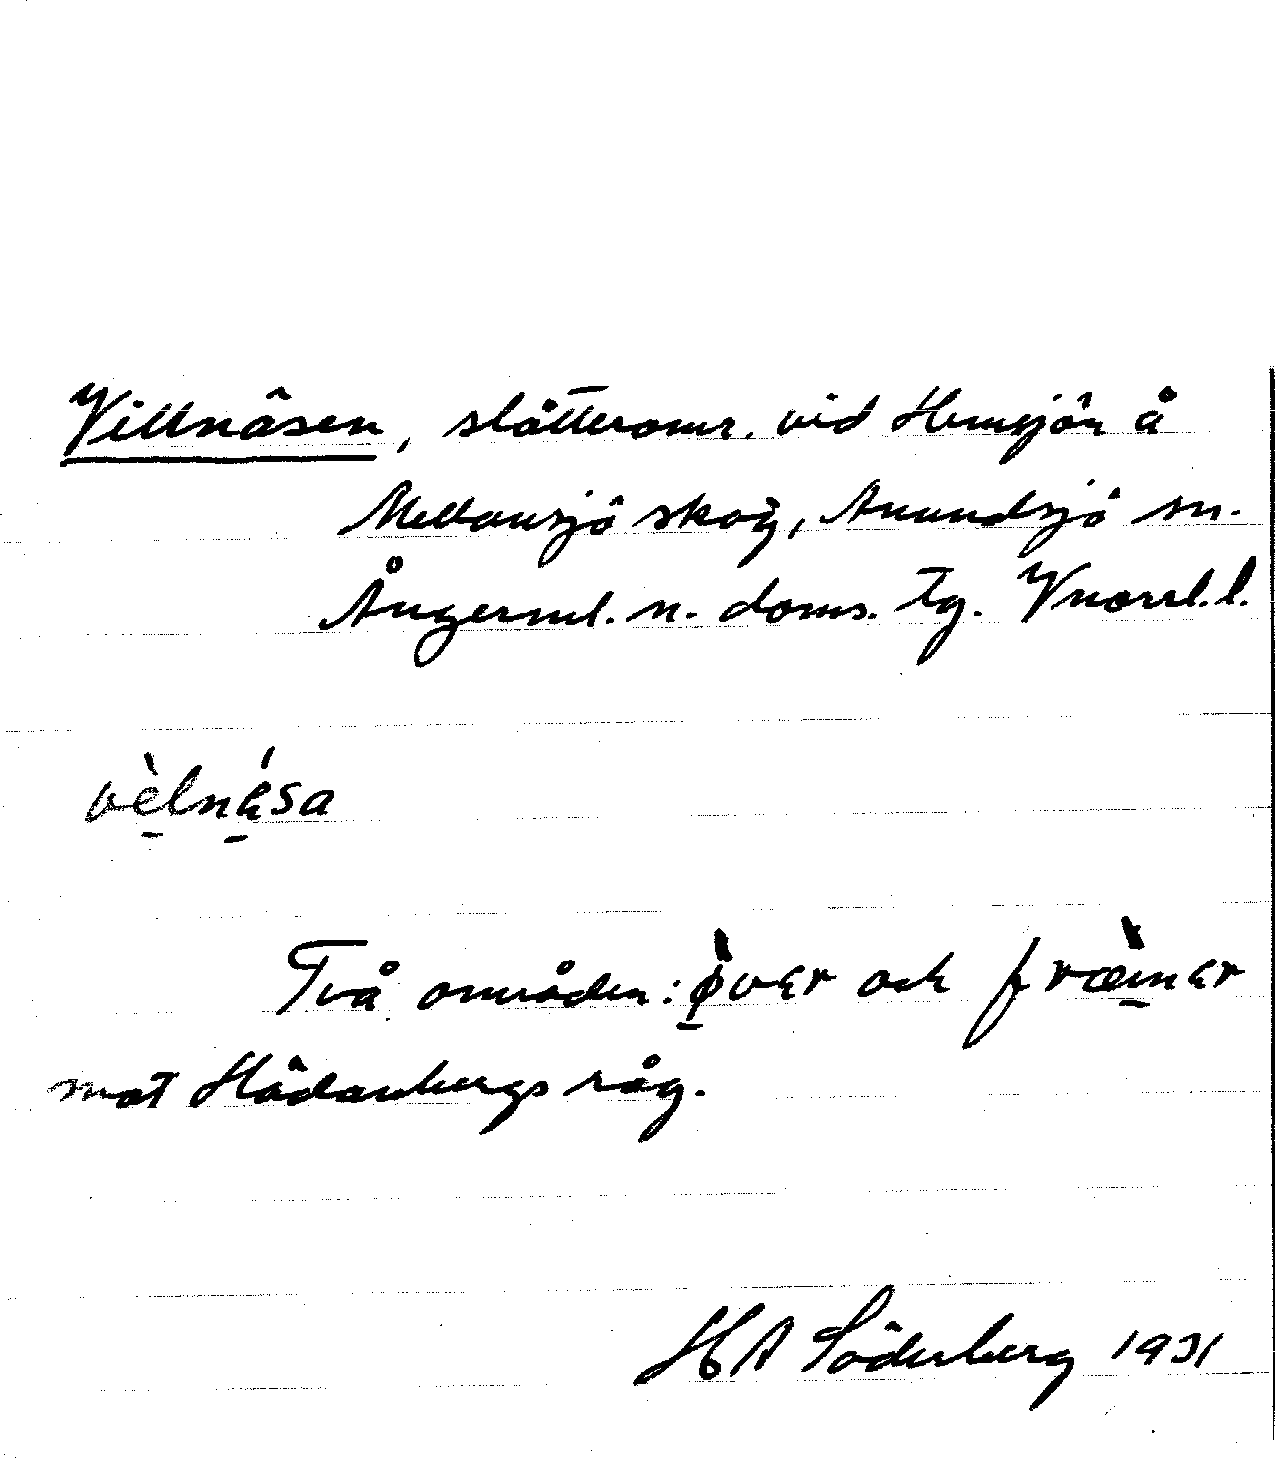 Villnäsen, slåtterområ. vid Hemsjön å
Mellansjö skog, Anundsjö sn.
Ångerml. n. doms. tg. Vnorrl. l.
vèlnása
Två områden: ø̀vɛr och fræ̀mɛr
mot Hädanbergs råg.
HA Söderberg 1931